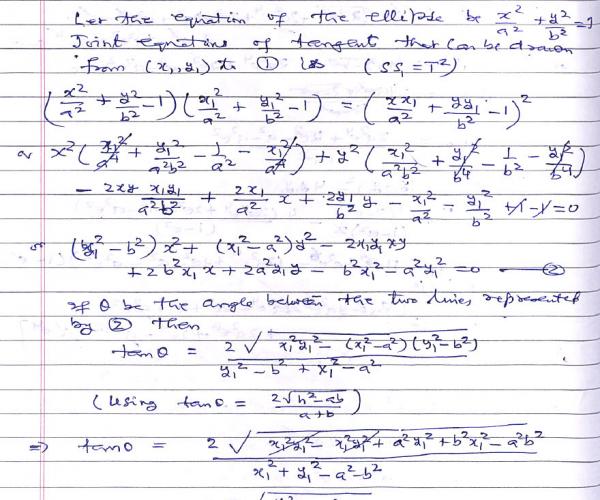 Let the equation of the ellipse be x²/a² + y²/b² = 1
Joint equations of tangent that can be drawn
from (x₁, y₁) to ① is (SS₁ = T²)
(x²/a² + y²/b² - 1) (x₁²/a² + y₁²/b² - 1) = (xx₁/a² + yy₁/b² - 1)²
or x² (x₁²/a⁴ + y₁²/a²b² - 1/a² - x₁²/a⁴) + y² (x₁²/a²b² + y₁²/b⁴ - 1/b² - y₁²/b⁴)
- 2xy x₁y₁/a²b² + 2x₁/a² x + 2y₁/b² y - x₁²/a² - y₁²/b² + 1 - 1 = 0
or (y₁² - b²) x² + (x₁² - a²) y² - 2x₁y₁ xy
+ 2b²x₁x + 2a²y₁y - b²x₁² - a²y₁² = 0 — ②
If θ be the angle between the two lines represented
by ② then
tanθ = 2√(x₁²y₁² - (x₁² - a²)(y₁² - b²)) / (y₁² - b² + x₁² - a²)
(Using tanθ = 2√(h² - ab) / (a + b))
⇒ tanθ = 2√(x₁²y₁² - x₁²y₁² + a²y₁² + b²x₁² - a²b²) / (x₁² + y₁² - a² - b²)